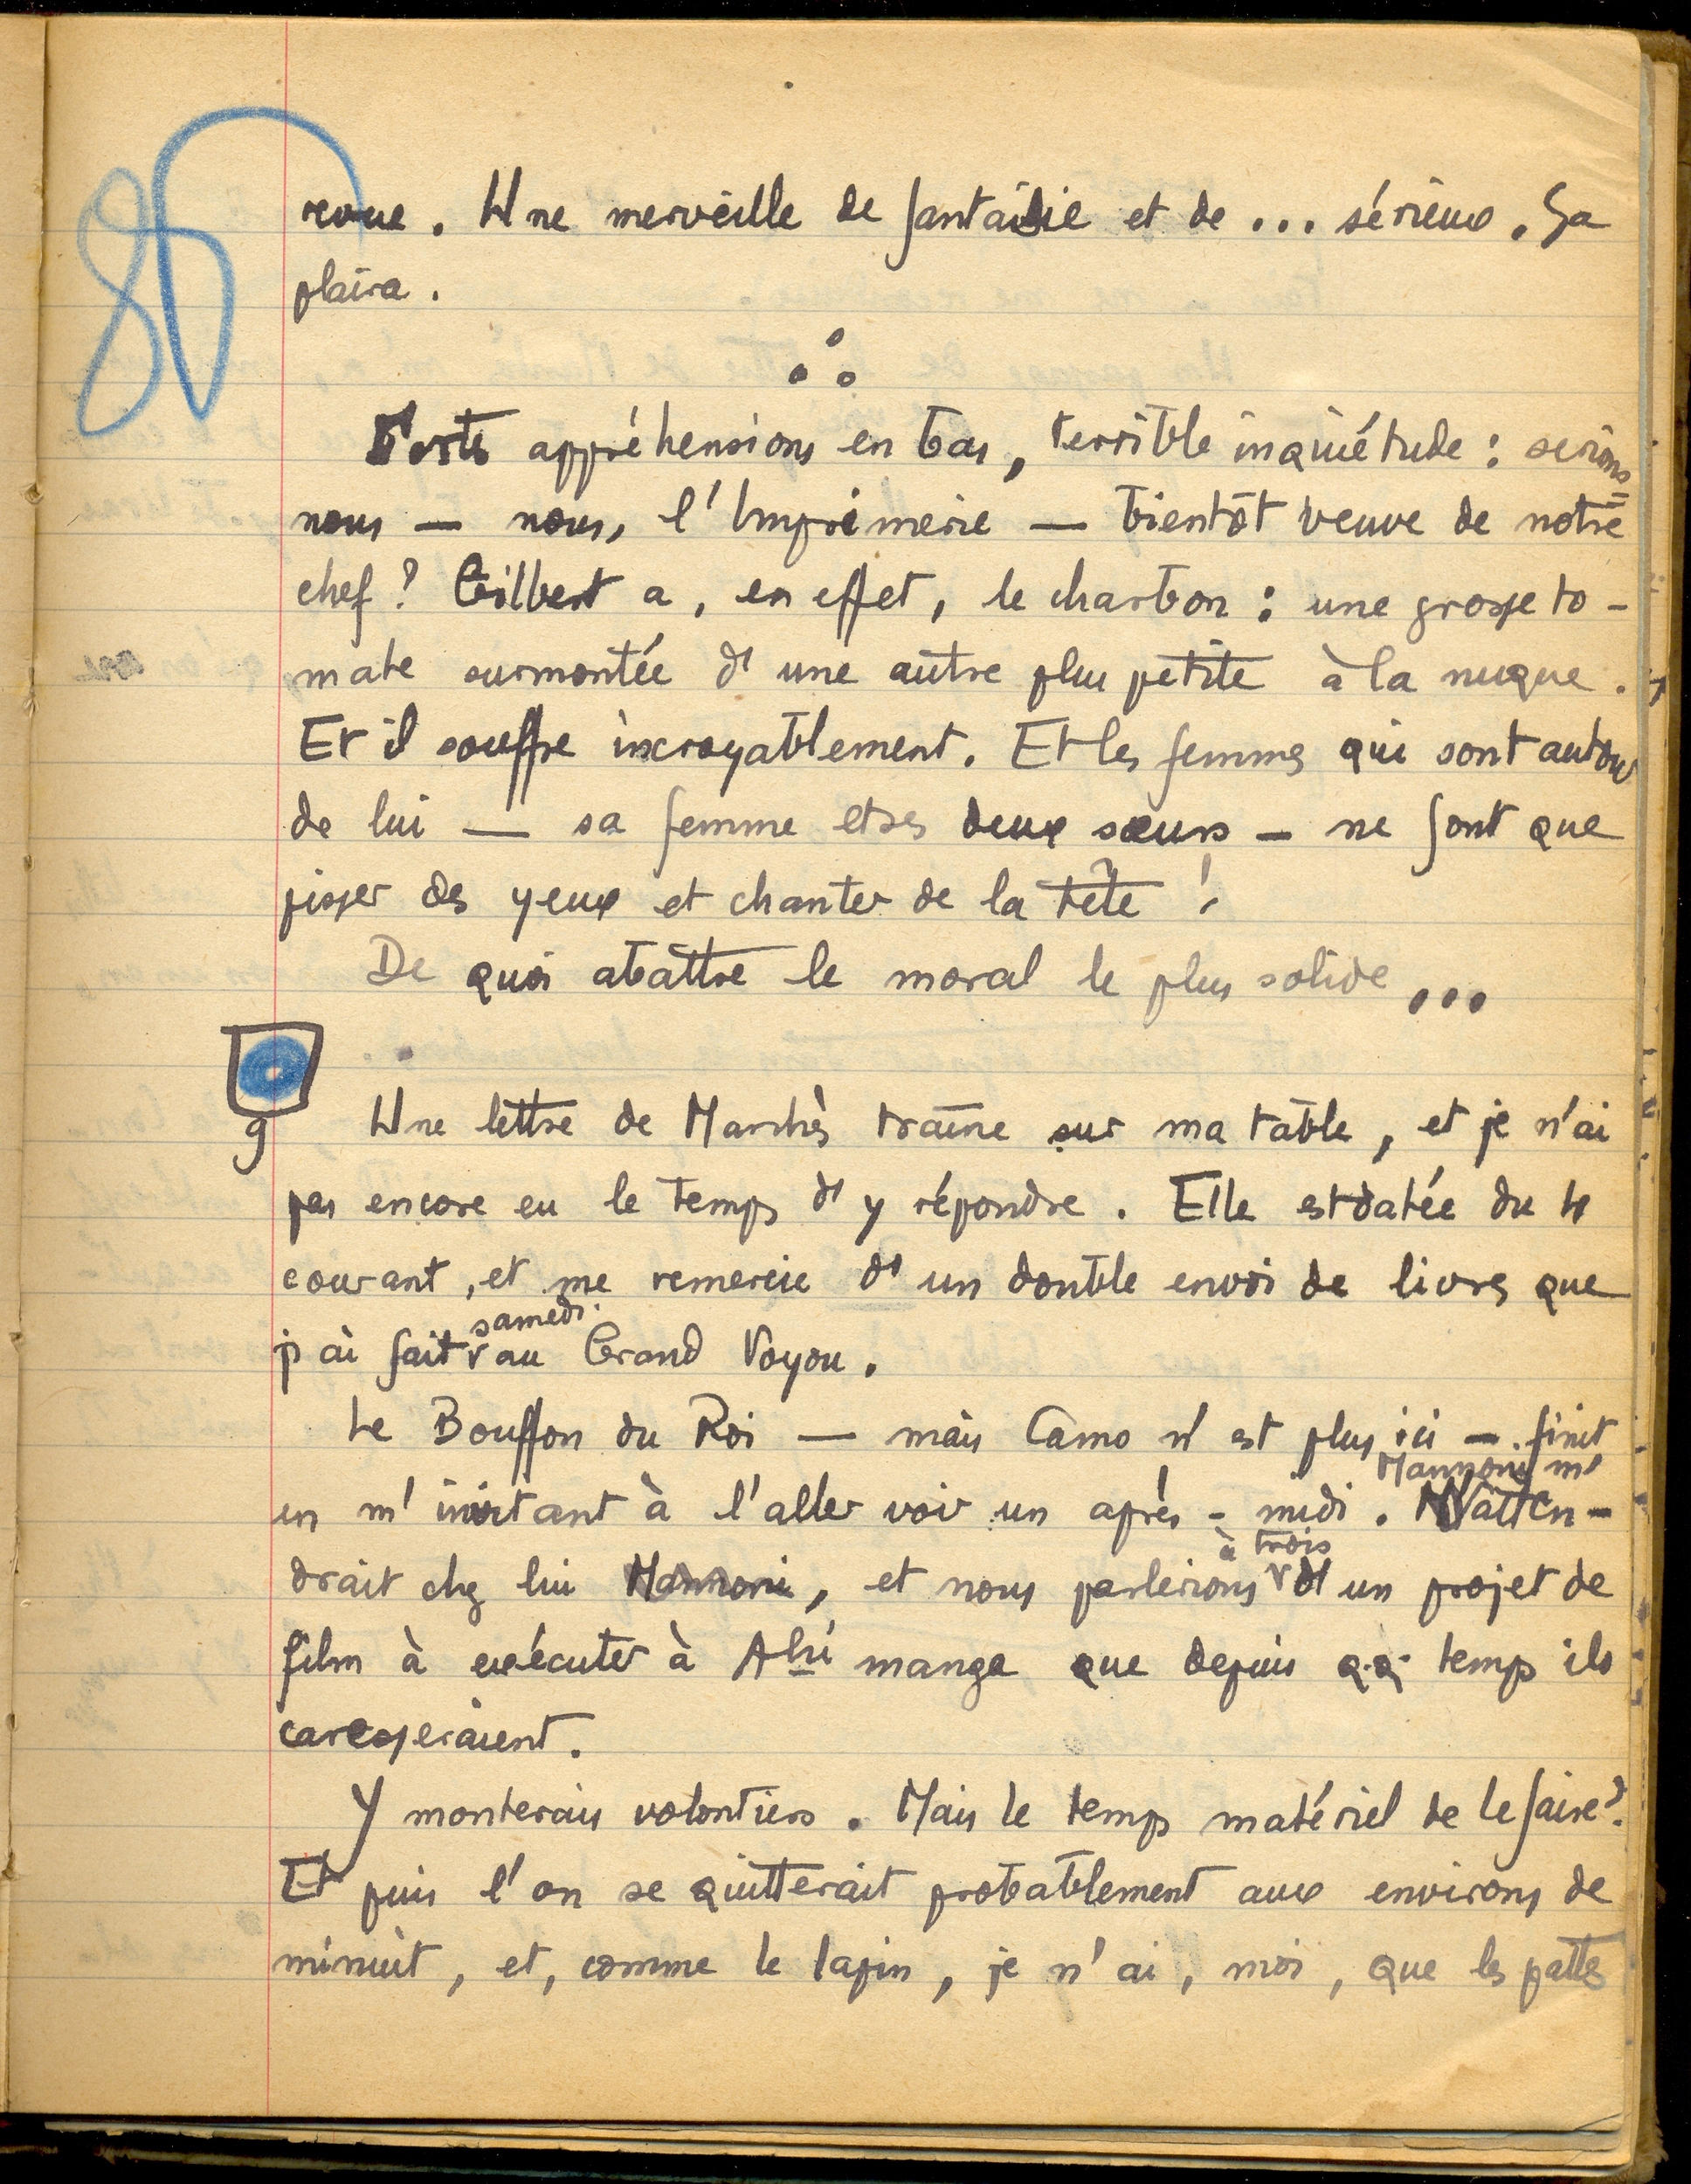 80
revue. Une merveille de fantaisie et de ... sérieux. Ça
plaira.
Fortes appréhensions en bas, terrible inquiétude : serions-
nous — nous, l'Imprimerie — bientôt veuve de notre
chef ? Gilbert a, en effet, le charbon : une grosse to-
mate surmontée d'une autre plus petite à la nuque.
Et il souffre incroyablement. Et les femmes qui sont autour
de lui — sa femme et ses deux sœurs — ne font que
pisser des yeux et chanter de la tête !
De quoi abattre le moral le plus solide ...
9
Une lettre de Marchès traîne sur ma table, et je n'ai
pas encore eu le temps d'y répondre. Elle est datée du 4
courant, et me remercie d'un double envoi de livres que
j'ai fait samedi au Grand Voyou.
Le Bouffon du Roi — mais Camo n'est plus ici — finit
en m'invitant à l'aller voir un après-midi. Mannoni m'atten-
drait chez lui Mannoni, et nous parlerions à trois d'un projet de
film à exécuter à Ahimanga que depuis qq temps ils
caresseraient.
Y monterais volontiers. Mais le temps matériel de le faire ?
Et puis l'on se quitterait probablement aux environs de
minuit, et, comme le lapin, je n'ai, moi, que les pattes